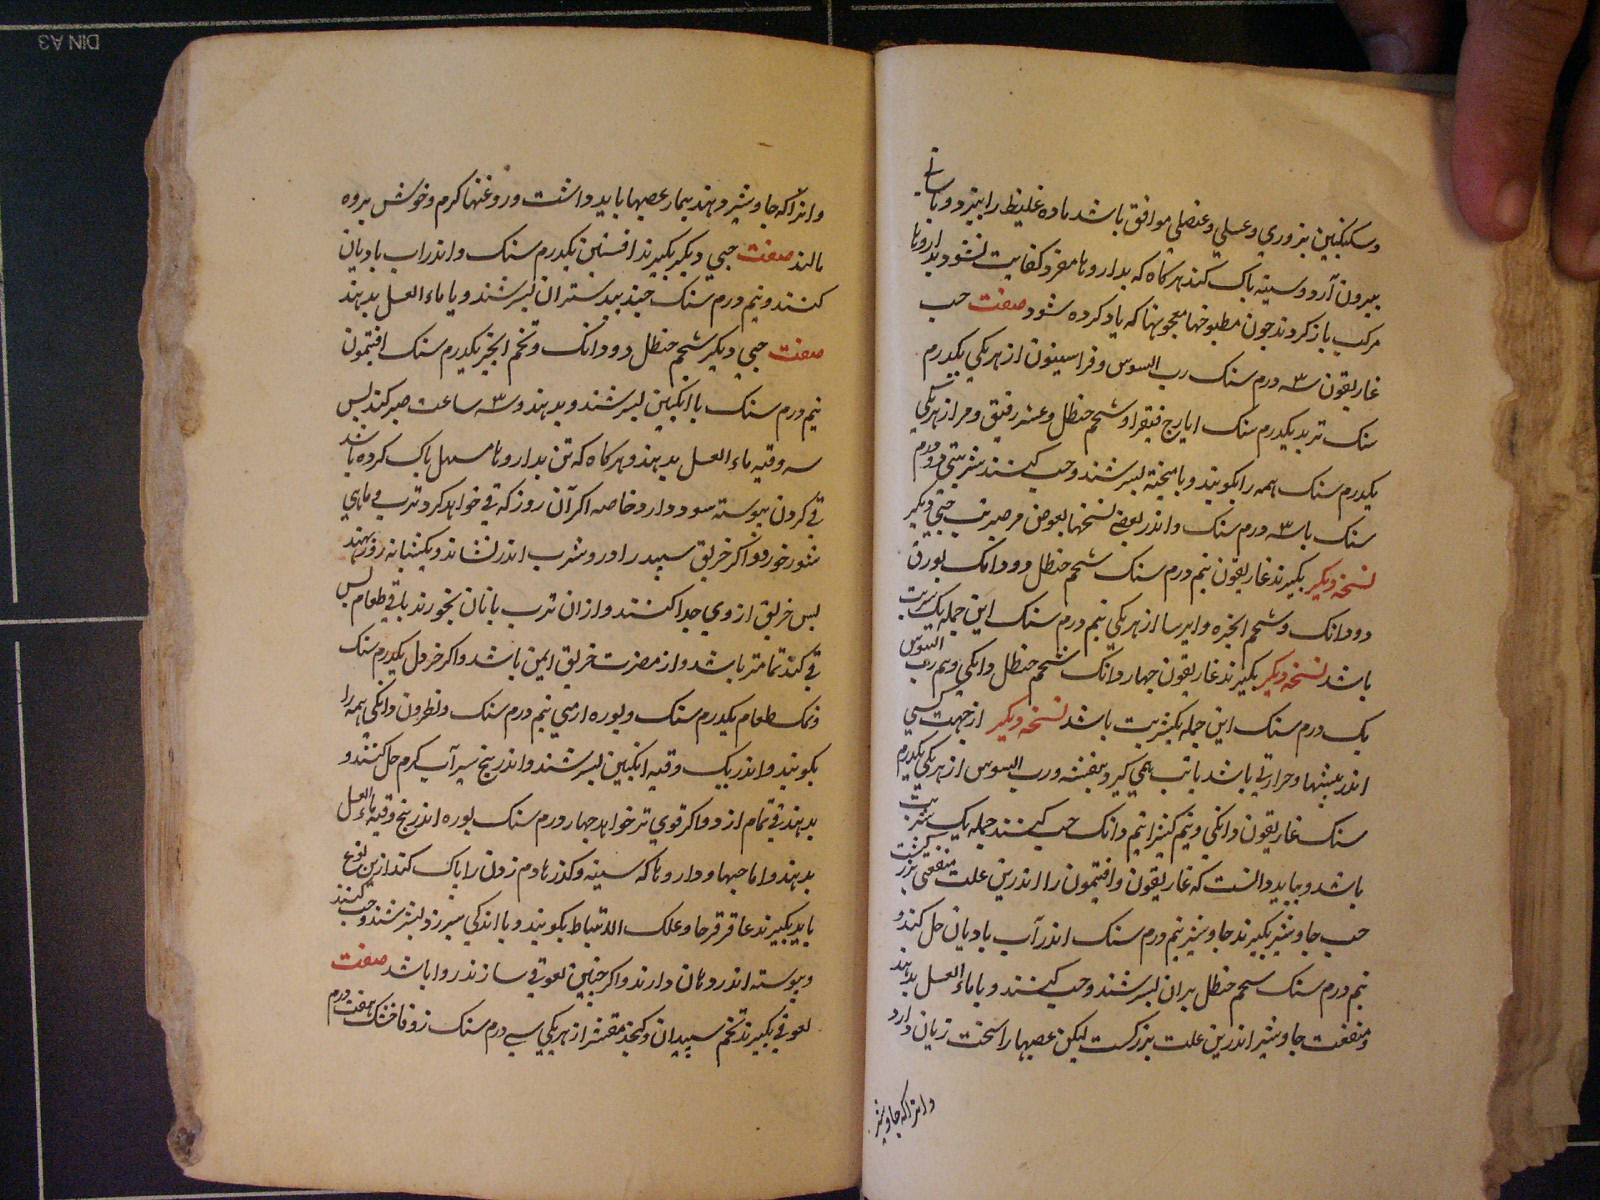 وسکنکبین بزوری و عسلی و عنصلی موافق باشد ماده غلیظ را بپزد و باسانی
بیرون آرد و سینه پاک کند هرکاه که بداروها مفرد کفایت نشود بداروها
مرکب باز کردند چون مطبوخها معجونها که یاد کرده شود صفت حب
غاریقون ۳ درم سنک رب السوس و فراسیون از هریکی یکدرم
سنک تربد یکدرم سنک ایارج فیقرا و شحم حنظل و عنزروت و مر از هریکی
یکدرم سنک همه را بکوبند و بامیخته بسرشند و حب کنند شربتی دو درم
سنک یا ۳ درم سنک و اندر بعضی نسختها بعوض مر صبر
نسخه دیکر بکیرند غاریقون نیم درم سنک شحم حنظل دو دانک بورق
دو دانک و شحم انجره و ایرسا از هریکی نیم درم سنک این جمله یک شربت
باشد نسخه دیکر بکیرند غاریقون چهار دانک شحم حنظل دانکی و نیم رب السوس
یک درم سنک این جمله یکشربت باشد نسخه دیکر از جهت کسی
اندر تبشها و حرارتی باشد یا تب همی کیرد بنفشه و رب السوس از هریکی یکدرم
سنک غاریقون دانکی و نیم کتیرا نیم دانک حب کنند جمله یک شربت
باشد و بباید دانست که غاریقون و افتیمون را اندرین علت منفعتی بزرکست
حب جاوشیر بکیرند جاوشیر نیم درم سنک اندر آب بادیان حل کنند و
نیم درم سنک شحم حنظل بدان بسرشند و حب کنند و با ماء العسل بدهند
و منفعت جاوشیر اندرین علت بزرکست لیکن عصبها را سخت زیان دارد
وانرا که جاوشیر
وانرا که جاوشیر دهند تیمار عصبها باید داشت و روغنها کرم و خوش بروه
مالند صفت حبی دیکر بکیرند افسنتین یکدرم سنک و اندر آب بادیان
کنند و نیم درم سنک جندبیدستر ان بسرشند و با ماء العسل بدهند
صفت حبی دیکر شحم حنظل دو دانک و تخم انجره یکدرم سنک افتیمون
نیم درم سنک با انکبین بسرشند و بدهند و ۳ ساعت صبر کند پس
سه وقیه ماء العسل بدهند و هرکاه که تن بداروها مسهل پاک کرده باشد
قی کردن پیوسته سود دارد خاصه اکر آن روز که قی خواهد کرد ترب و ماهی
شور خورد و اکر خربق سپید را در ترب اندر نشاند و یکشبانه روز بنهند
پس خربق از وی جدا کنند و ازان ترب با نان بخورند با قی طعام پس
قی کند تمامتر باشد و از مضرت خربق ایمن باشد و اکر خردل یکدرم سنک
و نمک طعام یکدرم سنک و بوره ارمنی نیم درم سنک و نطرون دانکی همه را
بکوبند و اندر یک وقیه انکبین بسرشند و اندر پنج سیر آب کرم حل کنند و
بدهند قی تمام ارد و اکر قوی تر خواهد چهار درم سنک بوره اندر پنج وقیه ماءالعسل
بدهند و اما حبها و داروها که سینه و کذرهاء دم زدن را پاک کند ازین نوع
باید بکیرند عاقرقرحا و علک الانباط بکوبند و با اندکی بسرشند و حب کنند
و پیوسته اندر دهان دارند و اکر چنین لعوقی سازند روا باشد صفت
لعوقی بکیرند تخم سپیدان و کنجد مقشر از هریکی سی درم سنک زوفا خشک هفت درم